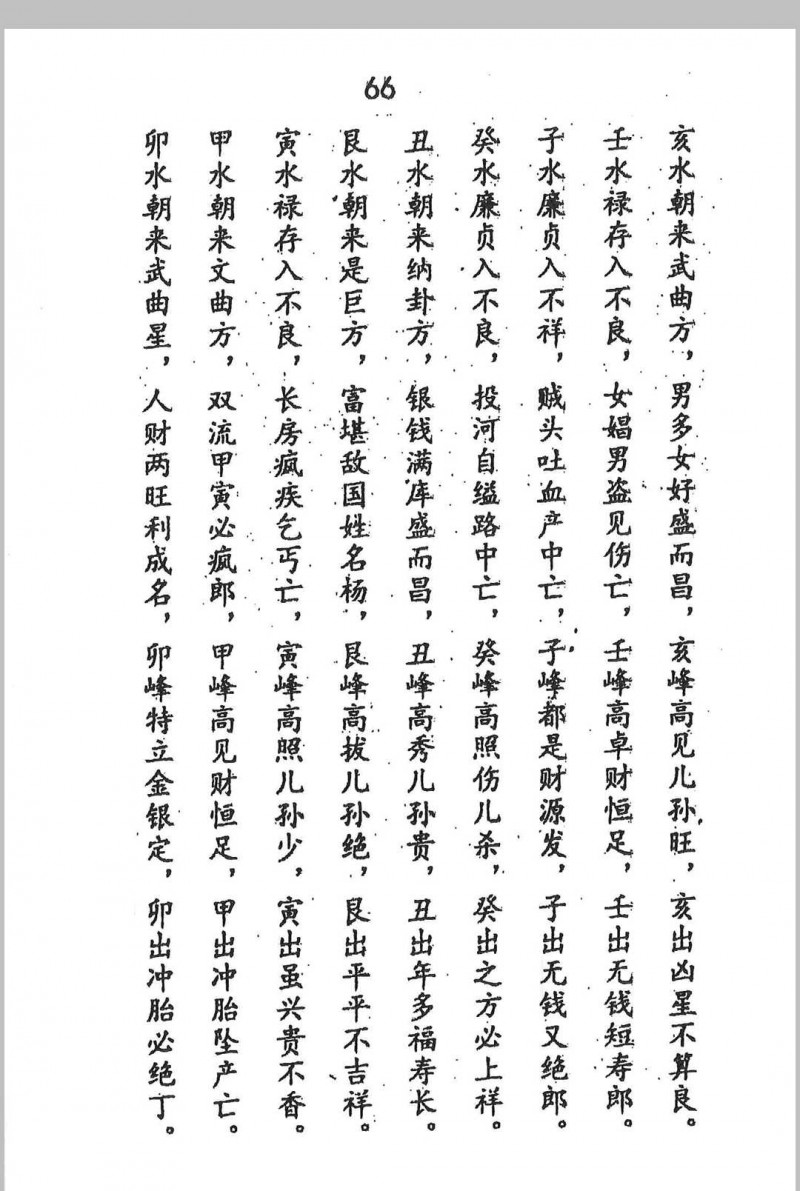 66
亥水朝来武曲方，男多女好盛而昌，亥峰高见儿孙旺，亥出凶星不算良。
壬水禄存入不良，女娼男盗见伤亡，壬峰高卓财恒足，壬出无钱短寿郎。
子水廉贞入不祥，贼头吐血产中亡，子峰都是财源发，子出无钱又绝郎。
癸水廉贞入不良，投河自缢路中亡，癸峰高照伤儿杀，癸出之方必上祥。
丑水朝来纳卦方，银钱满库盛而昌，丑峰高秀儿孙贵，丑出年多福寿长。
艮水朝来是巨方，富堪敌国姓名杨，艮峰高拔儿孙绝，艮出平平不吉祥。
寅水禄存入不良，长房疯疾乞丐亡，寅峰高照儿孙少，寅出虽兴贵不香。
甲水朝来文曲方，双流甲寅必疯郎，甲峰高见财恒足，甲出冲胎坠产亡。
卯水朝来武曲星，人财两旺利成名，卯峰特立金银定，卯出冲胎必绝丁。